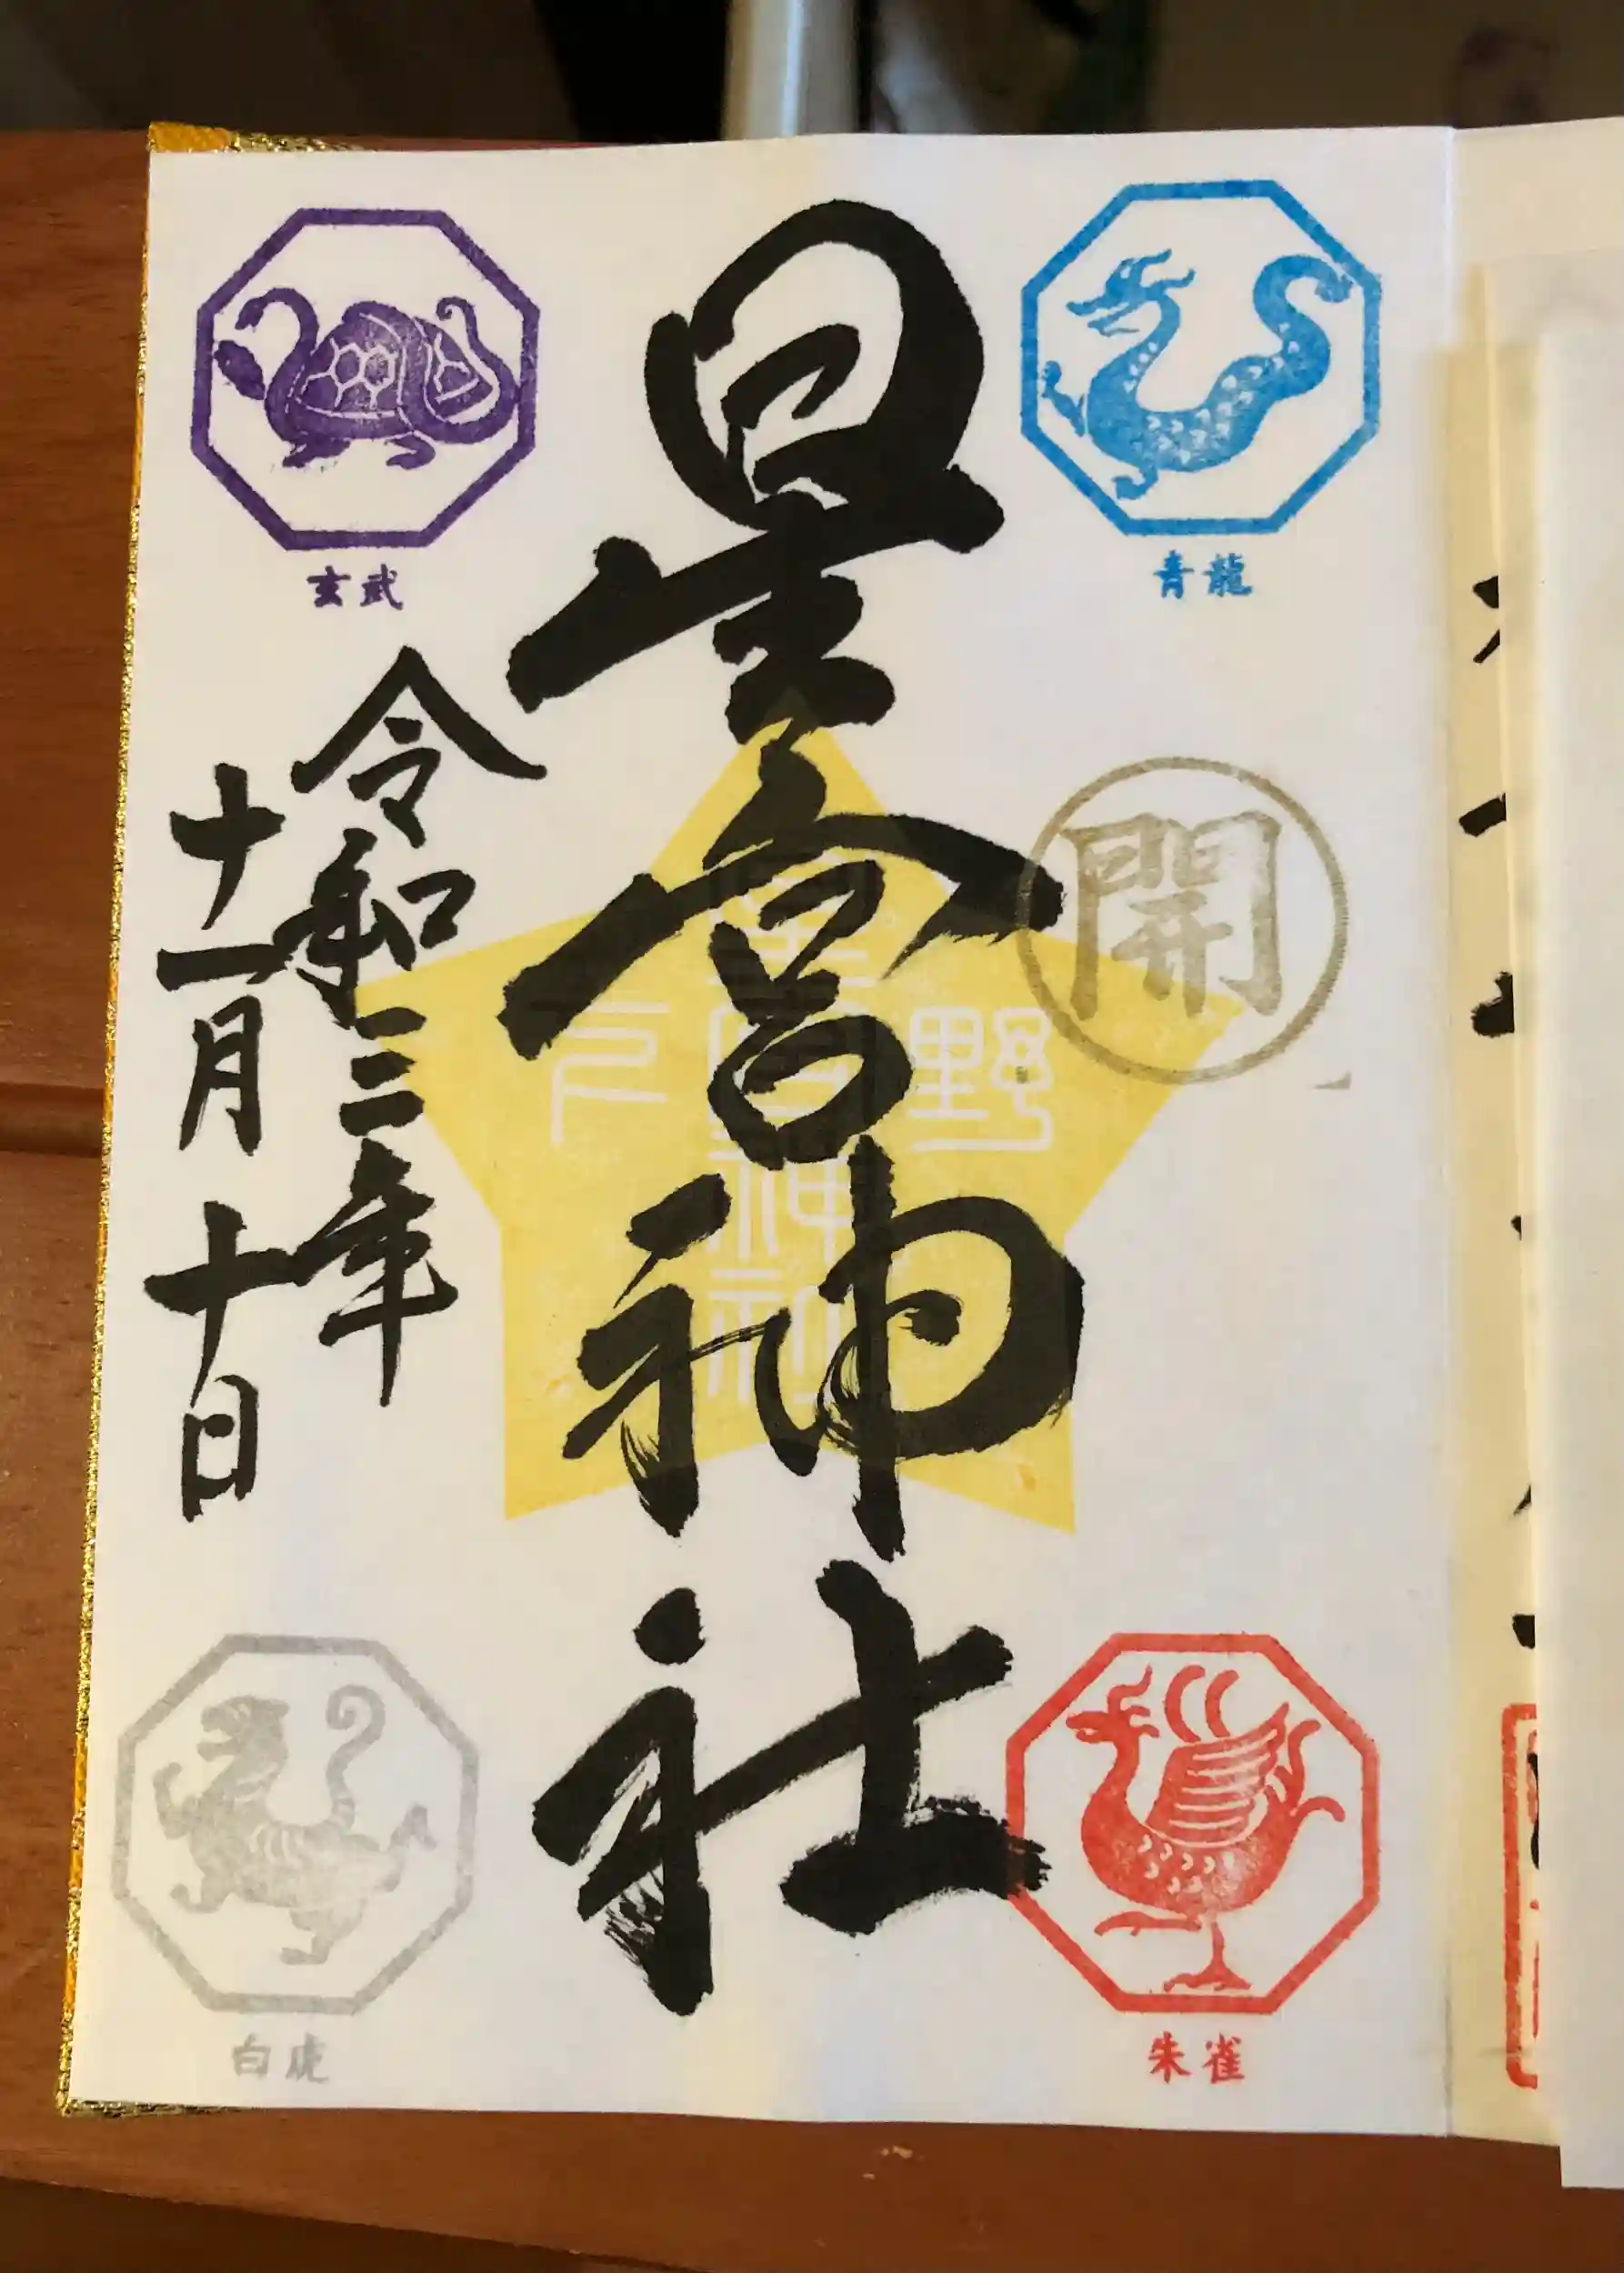 青龍
開
朱雀
星宮神社
野
星宮神社
玄武
令和三年
十一月十日
白虎